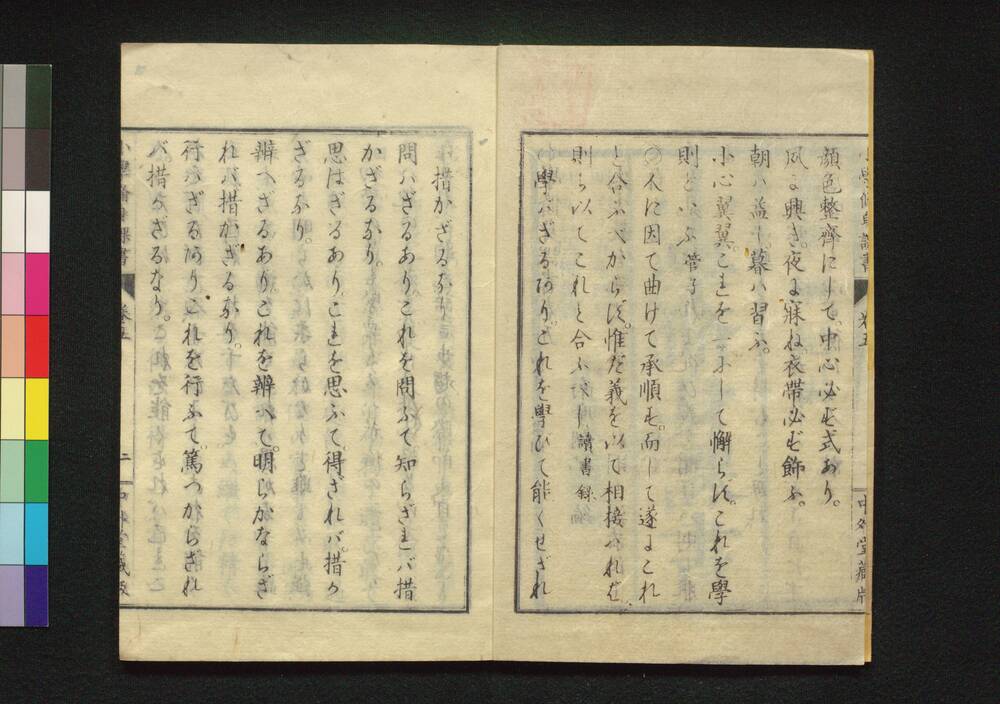 小學脩身課書
卷五
中外堂藏版
顔色整齊にして、中心必ず式あり。
夙に興き、夜に寐ね。衣帶必ず飾ふ。
朝ハ益し、暮ハ習ふ。
小心翼翼。これを一にして懈らず。これを學
則といふ 管子
〇人に因て曲けて承順す。而して遂にこれ
と合ふべからず。惟だ義を以て相接ハれば
則ち以てこれと合ふべし 讀書録
〇學バざるあり。これを學びて能くせざれ
バ措かざるなり
問ハざるあり、これを問ふて知らざれバ措
かざるなり。
思はざるあり、これを思ふて得ざれバ。措か
ざるなり。
辨へざるありこれを辨へて。明らかならざ
れバ措かざるなり。
行ハざるありこれを行ふて。篤つからざれ
バ措かざるなり。
小學脩身課書
卷五
二
中外堂藏版